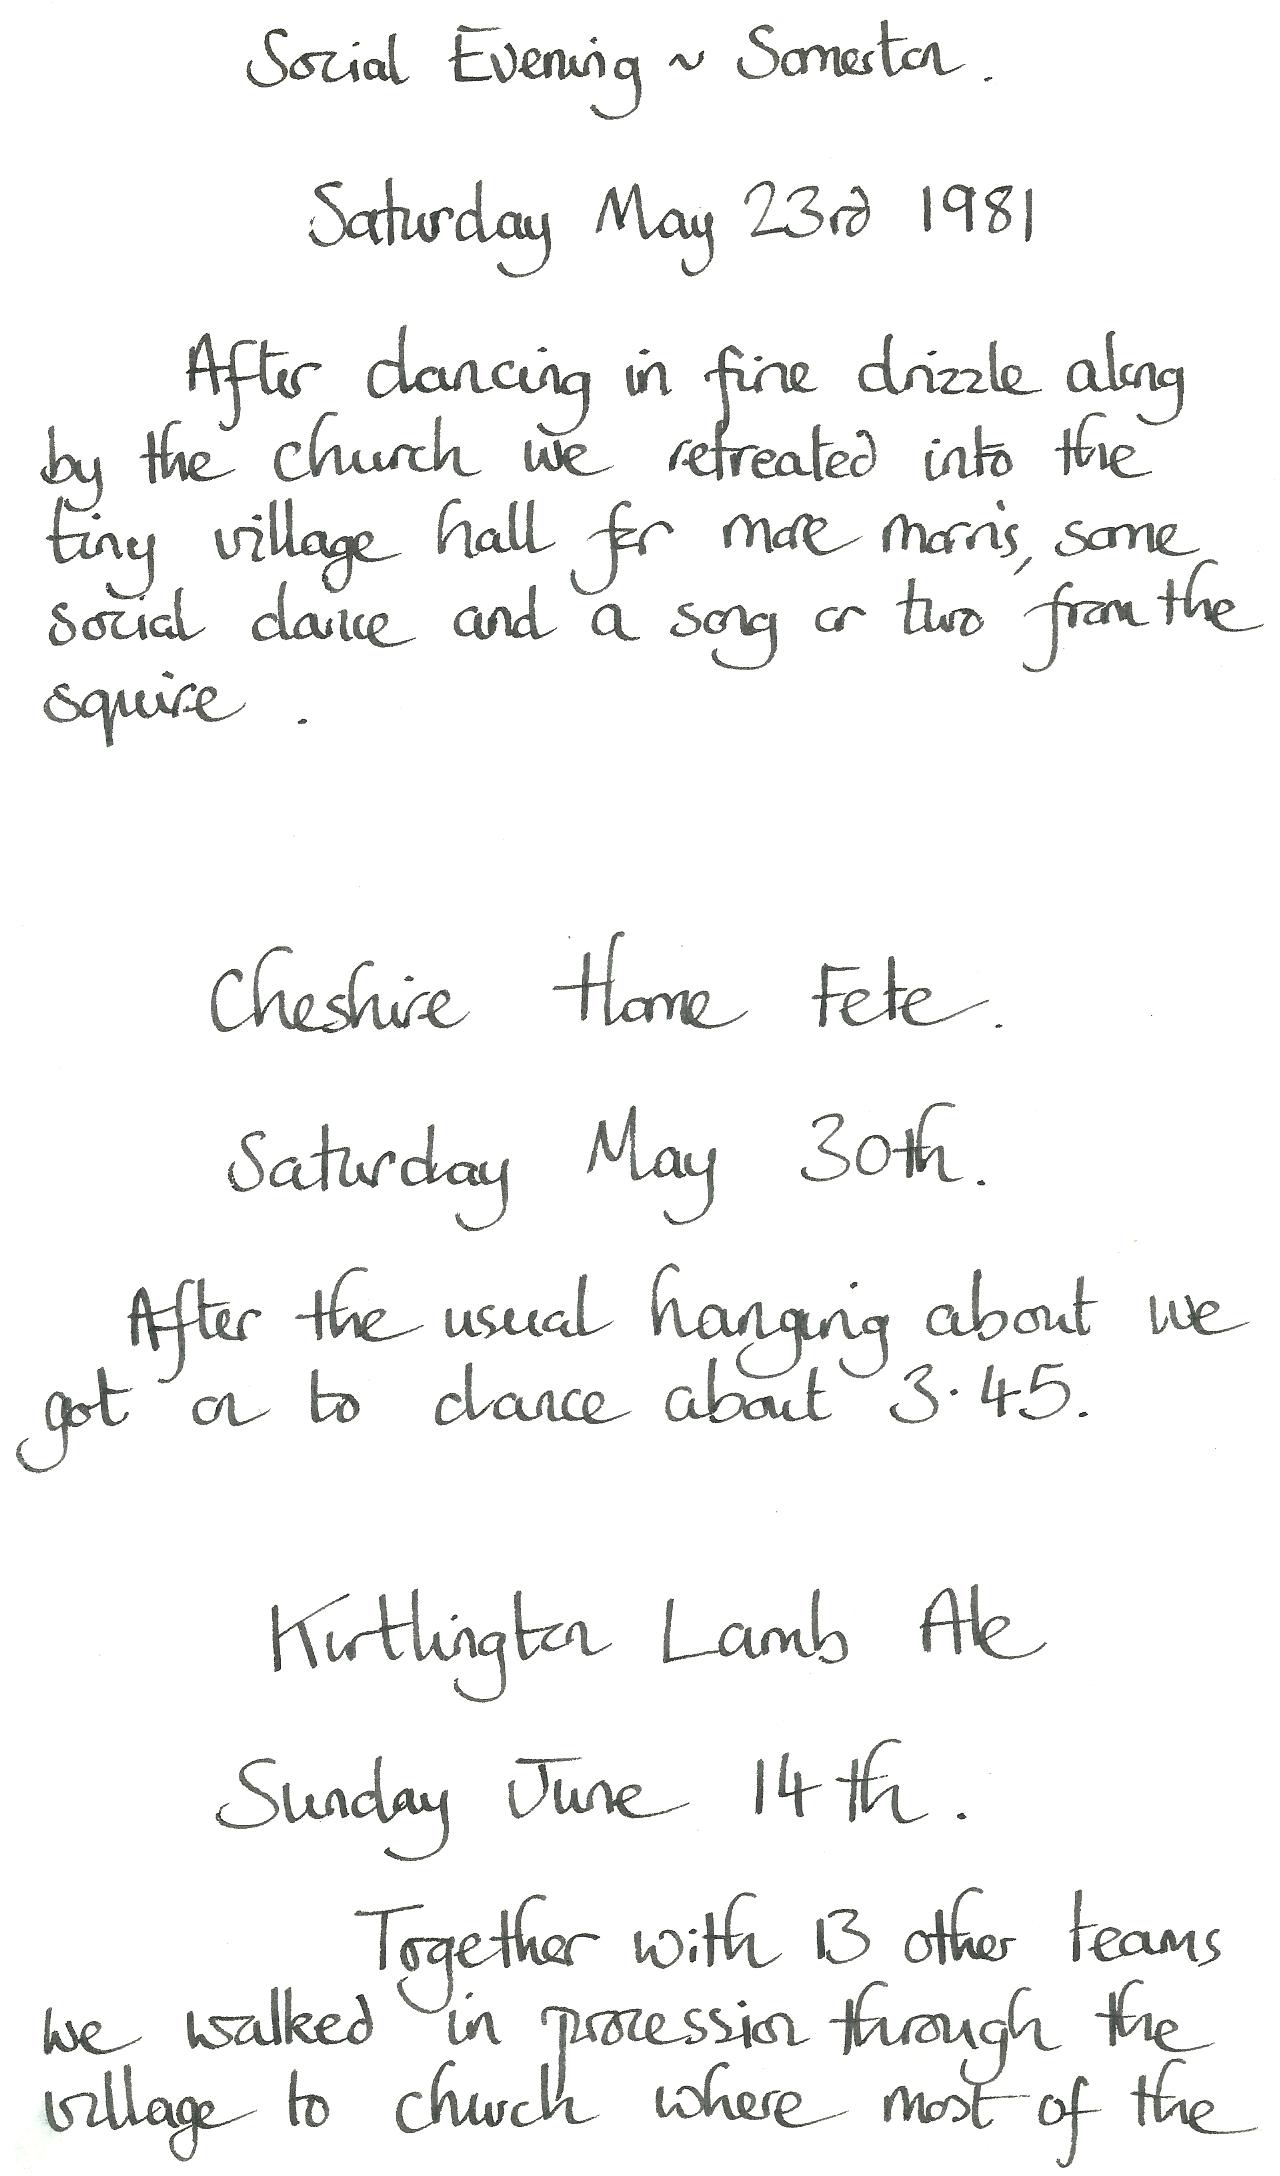 Social Evening ~ Somerton.
Saturday May 23rd 1981
After dancing in fine drizzle along
by the church we retreated into the
tiny village hall for more morris, some
social dance and a song or two from the
squire.
Cheshire Home Fete.
Saturday May 30th.
After the usual hanging about we
got on to dance about 3.45.
Kirtlington Lamb Ale
Sunday June 14th.
Together with 13 other teams
we walked in procession through the
village to church where most of the